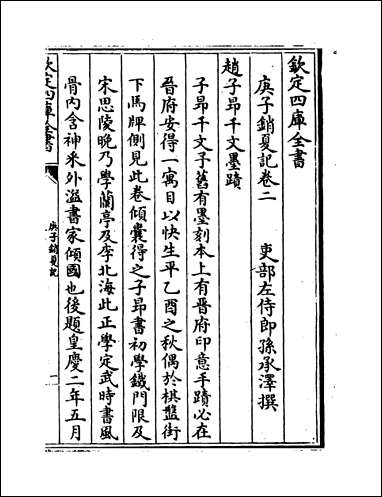 欽定四庫全書
庚子銷夏記卷二
吏部左侍郎孫承澤撰
趙子昂千文墨蹟
子昂千文予舊有墨刻本上有晉府印意手蹟必在
晉府安得一寓目以快生平乙酉之秋偶於棋盤街
下馬牌側見此卷傾囊得之子昂書初學鐵門限及
宋思陵晚乃學蘭亭及李北海此正學定武時書風
骨内含神釆外溢書家傾國也後題皇慶二年五月
欽定四庫全書
庚子銷夏記
一